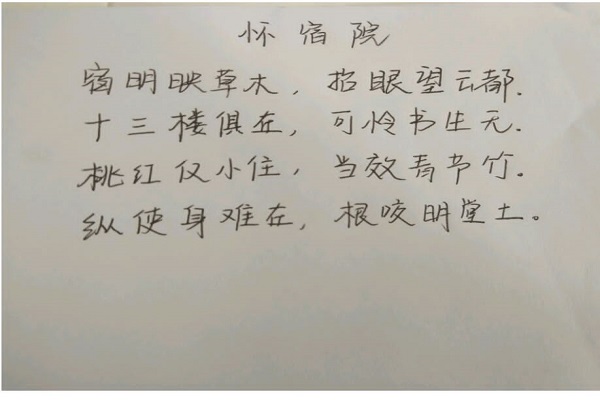 怀宿院
宿明映草木，招眼望云都.
十三楼俱在，可怜书生无.
桃红仅小住，当效青节竹.
纵使身难在，根咬明堂土。